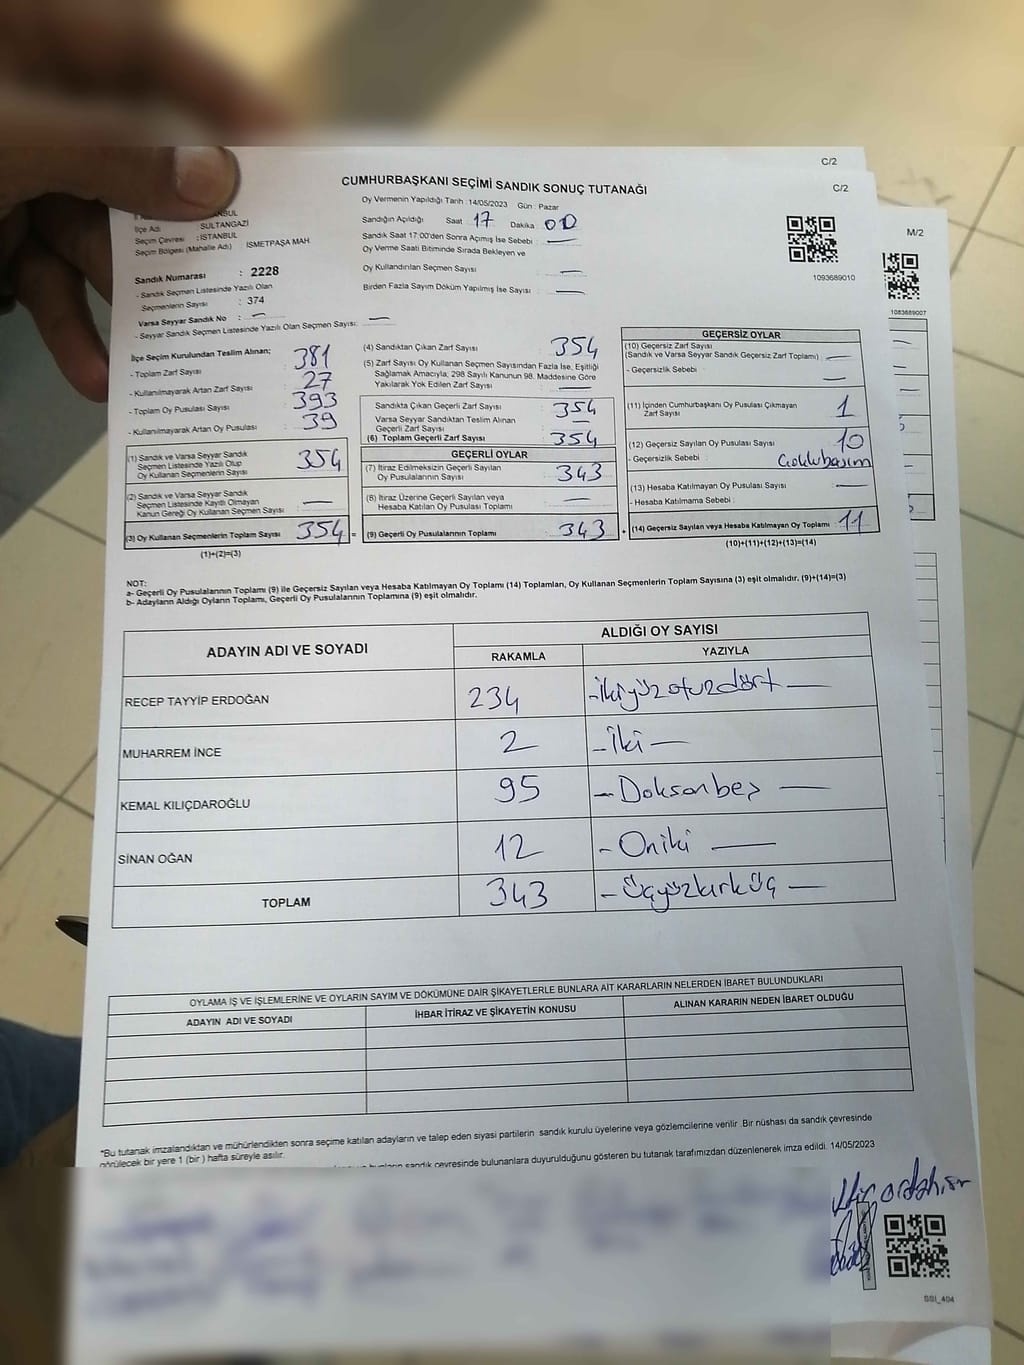 C/2
C/2
M/2
CUMHURBAŞKANI SEÇİMİ SANDIK SONUÇ TUTANAĞI
1093689010
1083689007
İlçe Adı : SULTANGAZİ
Seçim Çevresi : İSTANBUL
Seçim Bölgesi (Mahalle Adı) İSMETPAŞA MAH.
Oy Vermenin Yapıldığı Tarih : 14/05/2023 Gün : Pazar
Sandığın Açıldığı Saat 17 Dakika 00
Sandık Saat 17:00'den Sonra Açımış İse Sebebi : —
Oy Verme Saati Bitiminde Sırada Bekleyen ve
Oy Kullandırılan Seçmen Sayısı —
Birden Fazla Sayım Döküm Yapılmış İse Sayısı : —
Sandık Numarası : 2228
- Sandık Seçmen Listesinde Yazılı Olan
Seçmenlerin Sayısı : 374
Varsa Seyyar Sandık No : —
- Seyyar Sandık Seçmen Listesinde Yazılı Olan Seçmen Sayısı: —
İlçe Seçim Kurulundan Teslim Alınan;
- Toplam Zarf Sayısı 381
- Kullanılmayarak Artan Zarf Sayısı 27
- Toplam Oy Pusulası Sayısı 393
- Kullanılmayarak Artan Oy Pusulası 39
(1) Sandık ve Varsa Seyyar Sandık
Seçmen Listesinde Yazılı Olup
Oy Kullanan Seçmenlerin Sayısı 354
(2) Sandık ve Varsa Seyyar Sandık
Seçmen Listesinde Kayıtlı Olmayan
Kanun Gereği Oy Kullanan Seçmen Sayısı —
(3) Oy Kullanan Seçmenlerin Toplam Sayısı 354 =
(1)+(2)=(3)
(4) Sandıktan Çıkan Zarf Sayısı 354
(5) Zarf Sayısı Oy Kullanan Seçmen Sayısından Fazla İse, Eşitliği
Sağlamak Amacıyla; 298 Sayılı Kanunun 98. Maddesine Göre
Yakılarak Yok Edilen Zarf Sayısı —
Sandıkta Çıkan Geçerli Zarf Sayısı : 354
Varsa Seyyar Sandıktan Teslim Alınan
Geçerli Zarf Sayısı : —
(6) Toplam Geçerli Zarf Sayısı : 354
GEÇERLİ OYLAR
(7) İtiraz Edilmeksizin Geçerli Sayılan
Oy Pusulalarının Sayısı : 343
(8) İtiraz Üzerine Geçerli Sayılan veya
Hesaba Katılan Oy Pusulası Toplamı —
(9) Geçerli Oy Pusulalarının Toplamı : 343 +
GEÇERSİZ OYLAR
(10) Geçersiz Zarf Sayısı
(Sandık ve Varsa Seyyar Sandık Geçersiz Zarf Toplamı) : —
- Geçersizlik Sebebi : —
(11) İçinden Cumhurbaşkanı Oy Pusulası Çıkmayan
Zarf Sayısı 1
(12) Geçersiz Sayılan Oy Pusulası Sayısı : 10
- Geçersizlik Sebebi : Çoklubasım
(13) Hesaba Katılmayan Oy Pusulası Sayısı : —
- Hesaba Katılmama Sebebi :
(14) Geçersiz Sayılan veya Hesaba Katılmayan Oy Toplamı : 11
(10)+(11)+(12)+(13)=(14)
NOT:
a- Geçerli Oy Pusulalarının Toplamı (9) ile Geçersiz Sayılan veya Hesaba Katılmayan Oy Toplamı (14) Toplamları, Oy Kullanan Seçmenlerin Toplam Sayısına (3) eşit olmalıdır. (9)+(14)=(3)
b- Adayların Aldığı Oyların Toplamı, Geçerli Oy Pusulalarının Toplamına (9) eşit olmalıdır.
ADAYIN ADI VE SOYADI ALDIĞI OY SAYISI
RAKAMLA YAZIYLA
RECEP TAYYİP ERDOĞAN 234 - İkiyüzotuzdört —
MUHARREM İNCE 2 - İki —
KEMAL KILIÇDAROĞLU 95 - Doksanbeş —
SİNAN OĞAN 12 - Oniki —
TOPLAM 343 - Üçyüzkırküç —
OYLAMA İŞ VE İŞLEMLERİNE VE OYLARIN SAYIM VE DÖKÜMÜNE DAİR ŞİKAYETLERLE BUNLARA AİT KARARLARIN NELERDEN İBARET BULUNDUKLARI
ADAYIN ADI VE SOYADI İHBAR İTİRAZ VE ŞİKAYETİN KONUSU ALINAN KARARIN NEDEN İBARET OLDUĞU
*Bu tutanak imzalandıktan ve mühürlendikten sonra seçime katılan adayların ve talep eden siyasi partilerin sandık kurulu üyelerine veya gözlemcilerine verilir. Bir nüshası da sandık çevresinde
görülecek bir yere 1 (bir) hafta süreyle asılır.
sandık çevresinde bulunanlara duyurulduğunu gösteren bu tutanak tarafımızdan düzenlenerek imza edildi. 14/05/2023
SSI_404